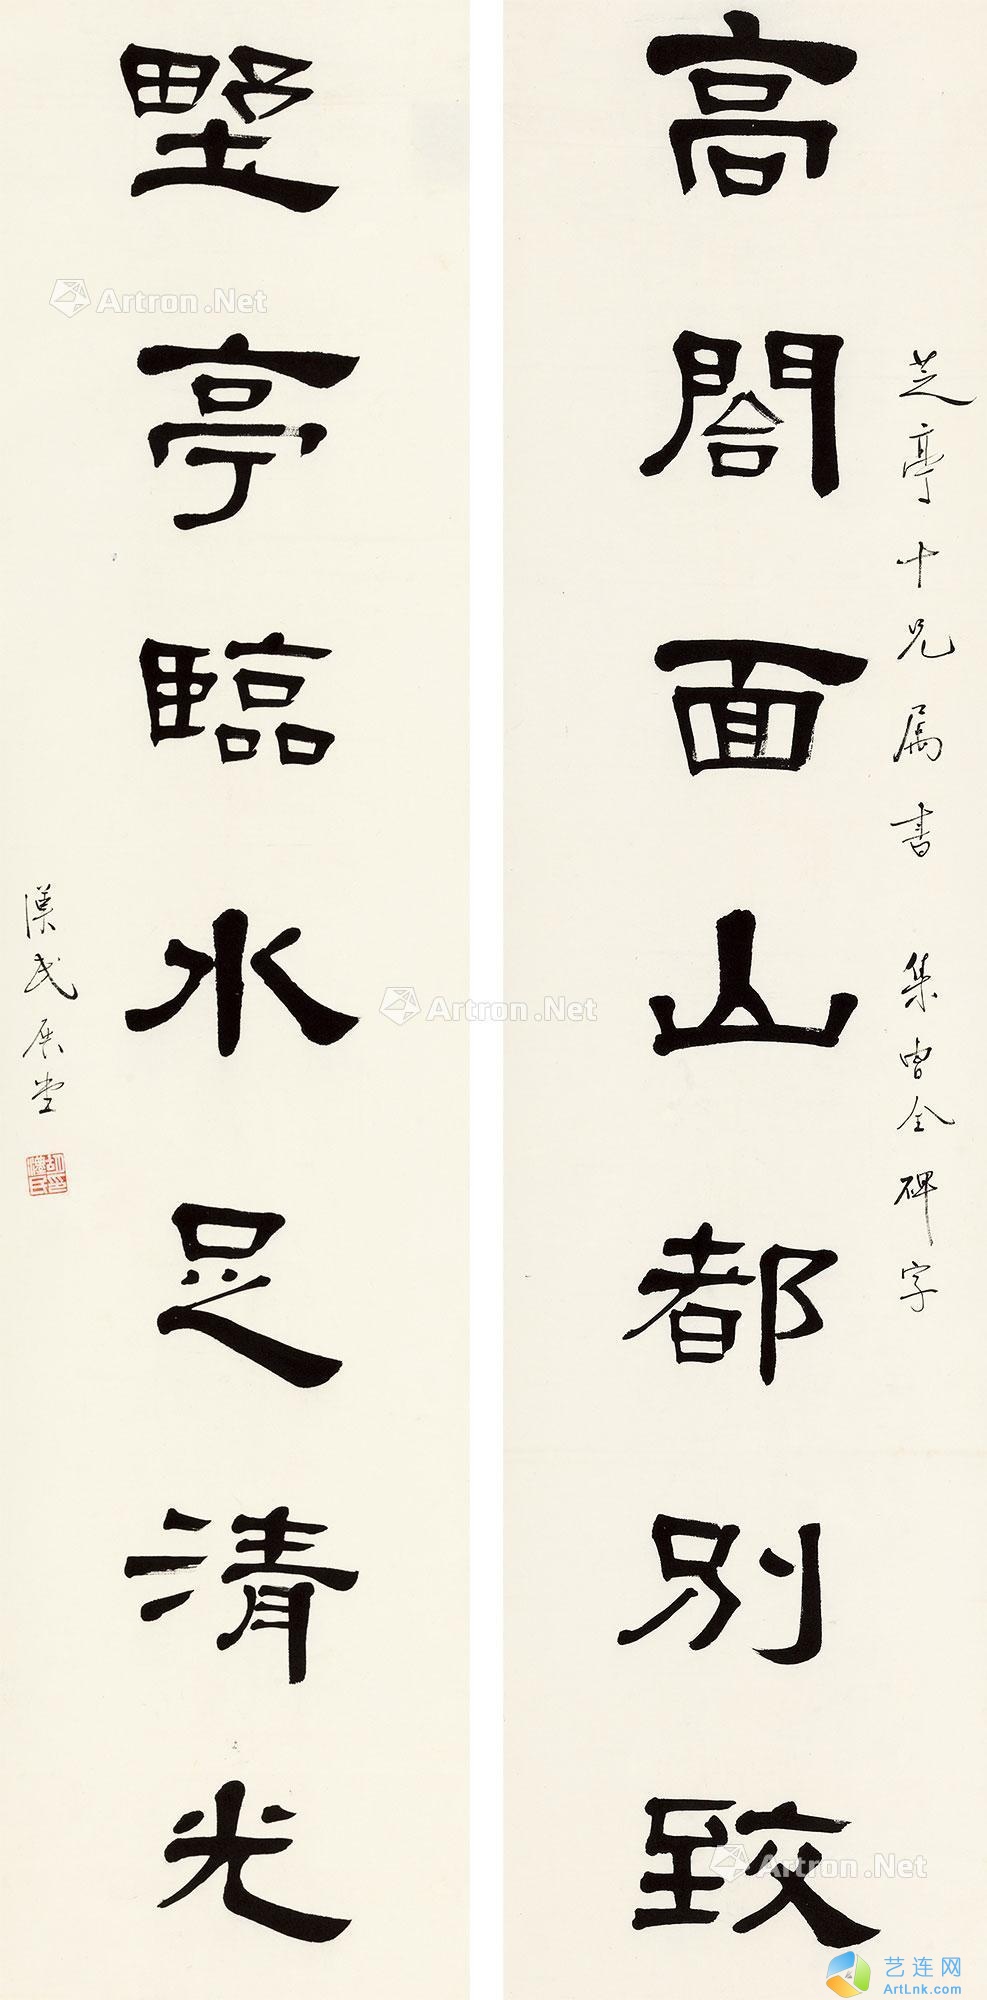 芝亭十兄属書 集曹全碑字
高閣面山都別致
墅亭臨水足清光
漢民展堂
胡漢民印
Artron.Net
Artron.Net
Artron.Net
艺连网
ArtLnk.com